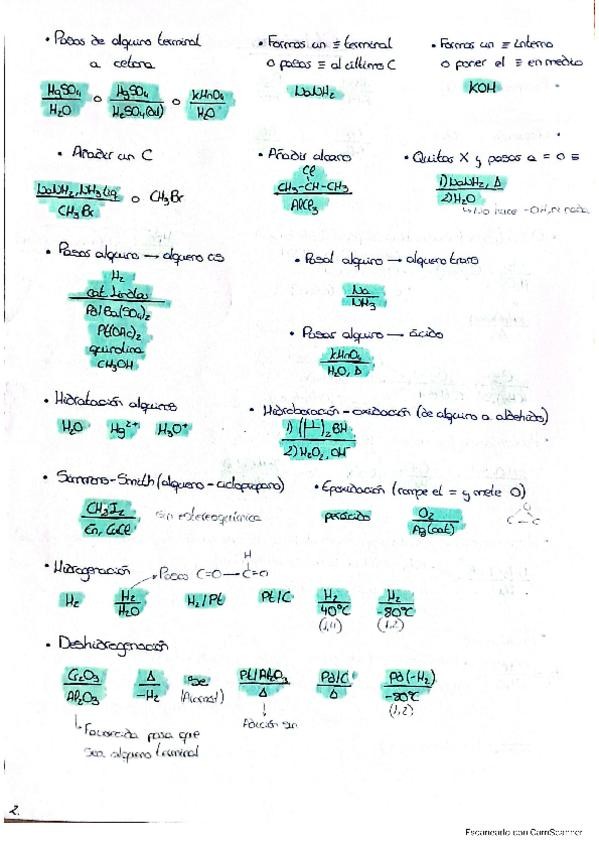 • Pasas de alquino terminal
a cetona
HgSO4 / H2O o HgSO4 / H2SO4(dil) o KMnO4 / H2O
• Formas un ≡ terminal
o pasas ≡ al último C
NaNH2
• Formas un ≡ interno
o poner el ≡ en medio
KOH
• Añadir un C
NaNH2, NH3 liq / CH3Br o CH3Br
• Añadir alcano
Cl
CH3-CH-CH3
AlCl3
• Quitas X y pasas a = o ≡
1) NaNH2, Δ
2) H2O
• Pasas alquino → alqueno cis
H2
cat. Lindlar
Pd/Ba(SO4)2
Pt(OAc)2
quinolina
CH3OH
• Pasar alquino → alqueno trans
Na
NH3
• Pasar alquino → ácido
KMnO4
H2O, Δ
• Hidratación alquinos
H2O Hg2+ H3O+
• Hidroboración - oxidación (de alquino a aldehído)
1) ( )2BH
2) H2O2, OH-
• Simmons-Smith (alqueno - ciclopropano)
CH2I2
Zn, CuCl
sin estereoquímica
• Epoxidación (rompe el = y mete O)
perácido
O2
Ag(cat)
O
C-C
• Hidrogenación
→ Pasas C=O → C=O
H
H2
H2 / H2O
H2/Pt
Pt/C
H2 / 40°C
(1,4)
H2 / -80°C
(1,2)
• Deshidrogenación
Cr2O3 / Al2O3
Δ / -H2
Se
Pt/Al2O3 / Δ
Pd/C / Δ
Pd(-H2) / -80°C
(1,2)
Adición sin
Favorecida para que
sea alqueno terminal
2.
Escaneado con CamScanner